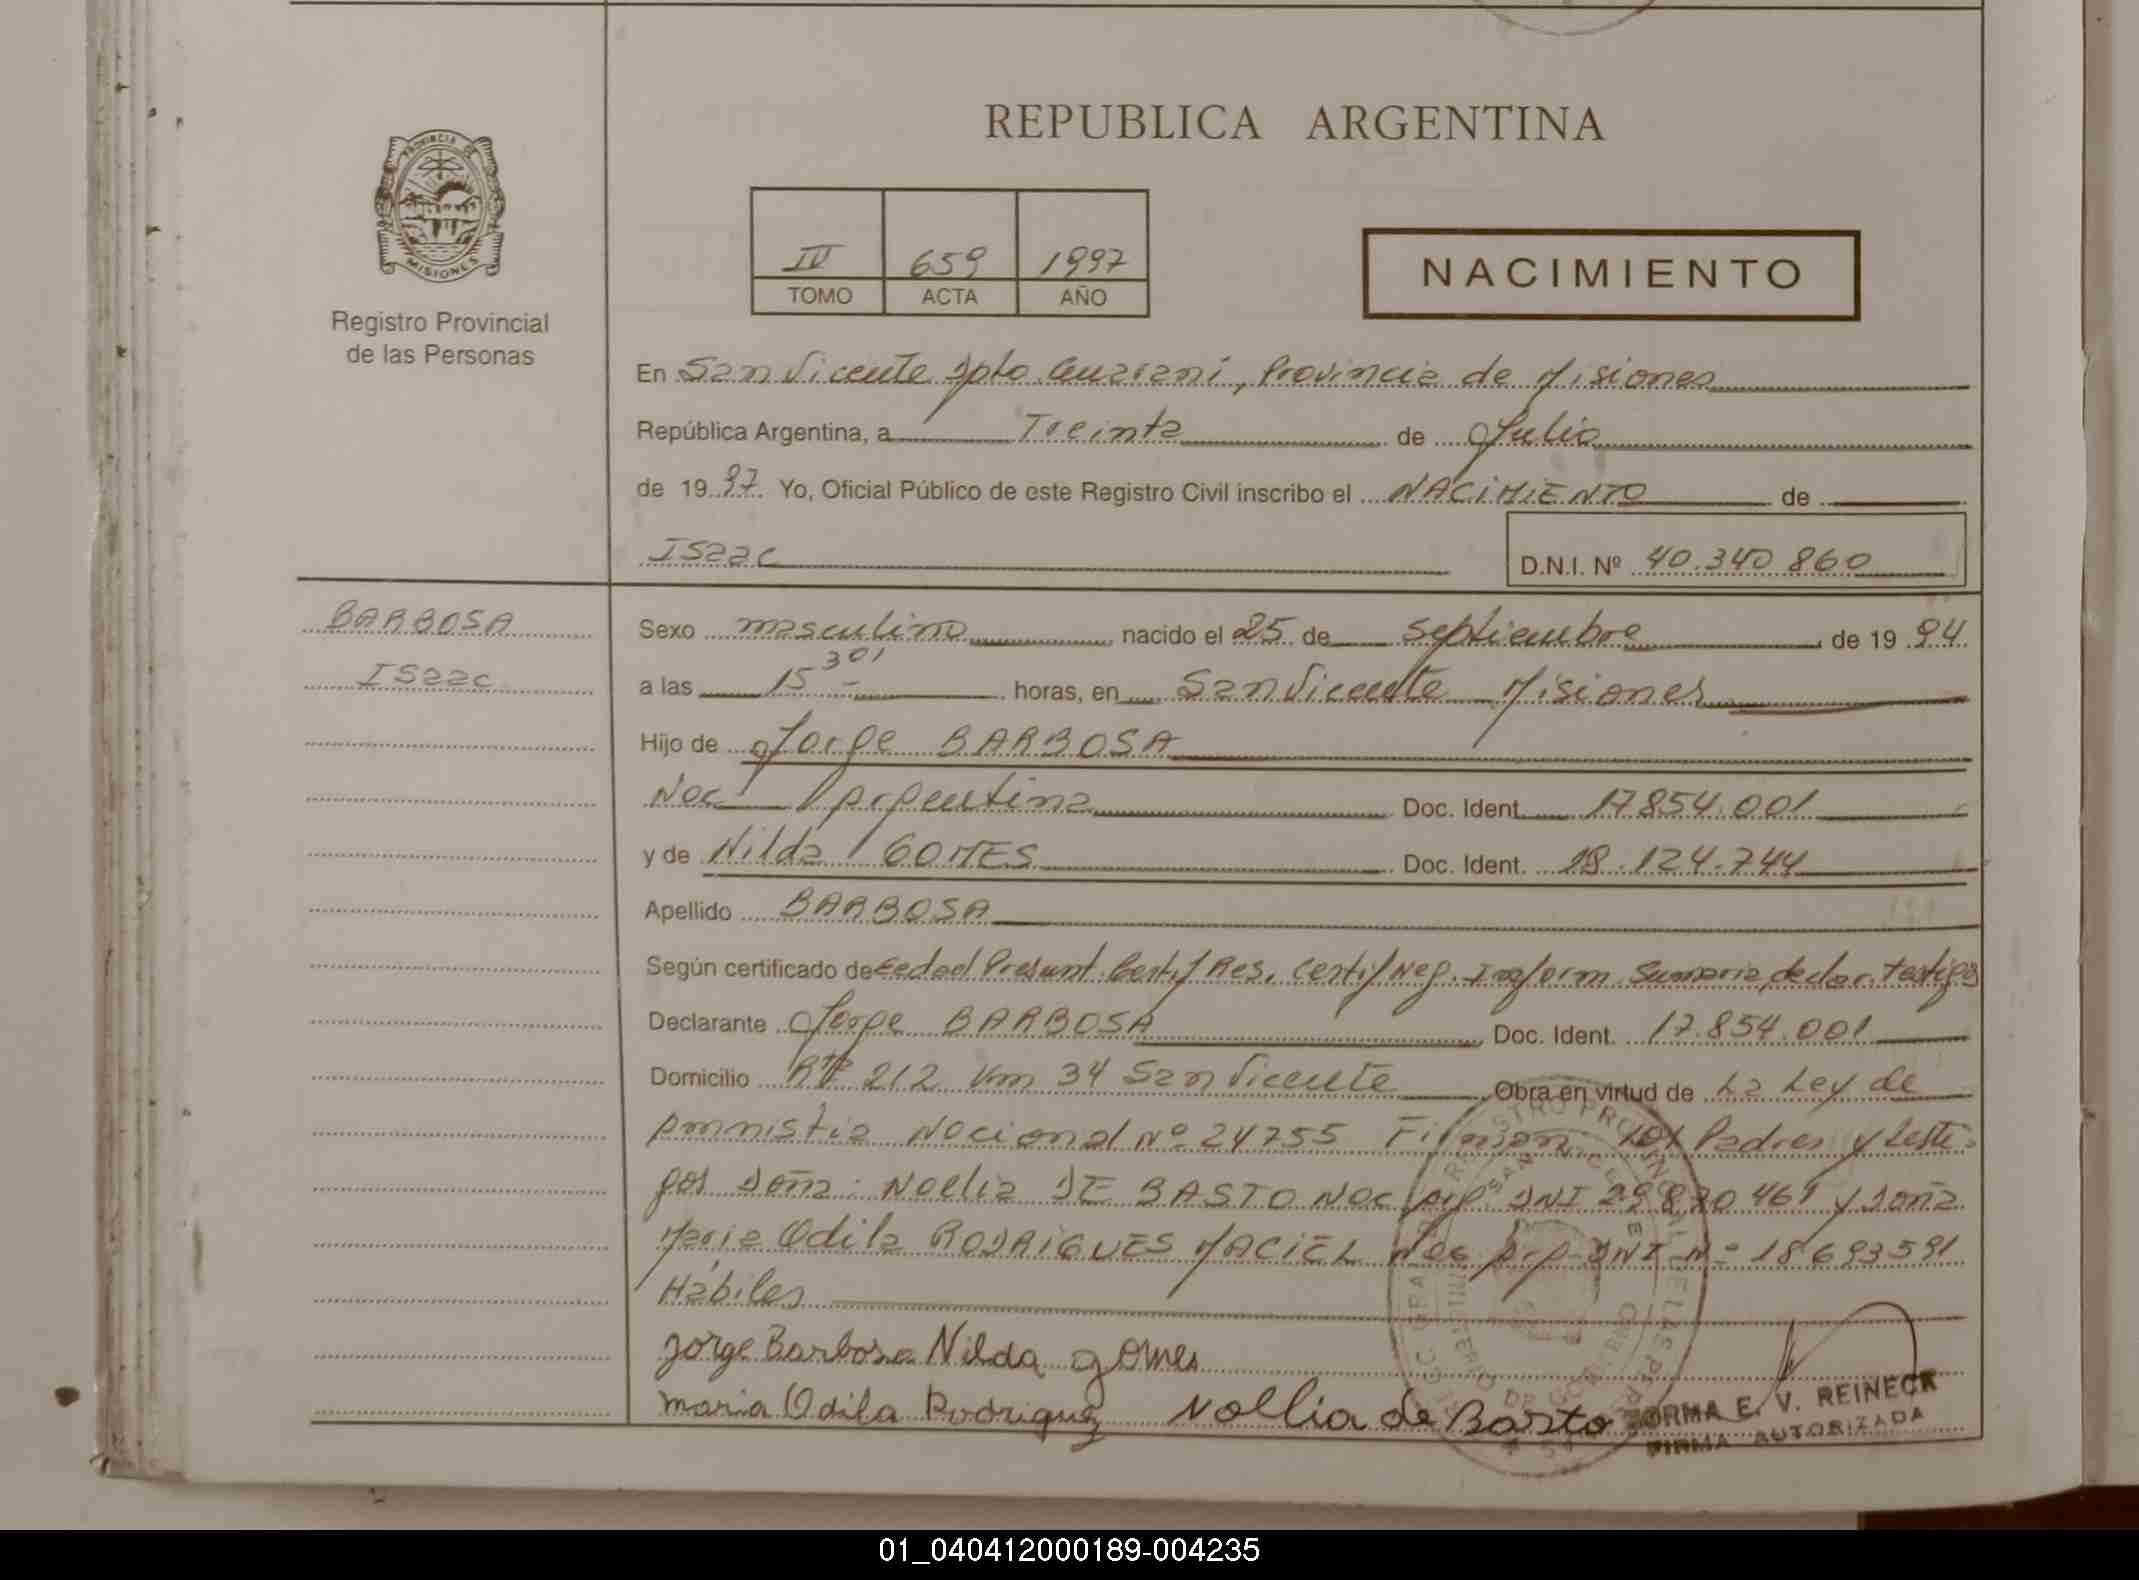 REPUBLICA ARGENTINA
PROVINCIA DE
MISIONES
Registro Provincial
de las Personas
IV 659 1997
TOMO ACTA AÑO
NACIMIENTO
En San Vicente Dpto Guarani, Provincia de Misiones
República Argentina, a Treinta de Julio
de 1997 Yo, Oficial Público de este Registro Civil inscribo el NACIMIENTO de
Isaac D.N.I. Nº 40.340 860
BARBOSA
Isaac
Sexo masculino nacido el 25 de Septiembre de 1994
a las 15 30' horas, en San Vicente Misiones
Hijo de Jorge BARBOSA
Nac Argentina Doc. Ident. 17854.001
y de Nilda GOMES Doc. Ident. 18.124.744
Apellido BARBOSA
Según certificado de Edad Presunt. Certif Res. Certif Neg. Inform Sumaria, declar. testigos
Declarante Jorge BARBOSA Doc. Ident. 17.854.001
Domicilio Rta 212 Km 34 San Vicente Obra en virtud de La Ley de
Amnistia Nacional Nº 24755 Firman los Padres y testi-
gos Doña: Noelia DE BASTO Nac Arg. DNI 29 830 461 y Doña
Maria Odila RODRIGUES MACIEL Nac Arg DNI Nº 18693591
Hábiles
Jorge Barbosa Nilda gomes
maria Odila Rodriguez Nollia de Basto
NORMA E. V. REINECK
FIRMA AUTORIZADA
01_040412000189-004235